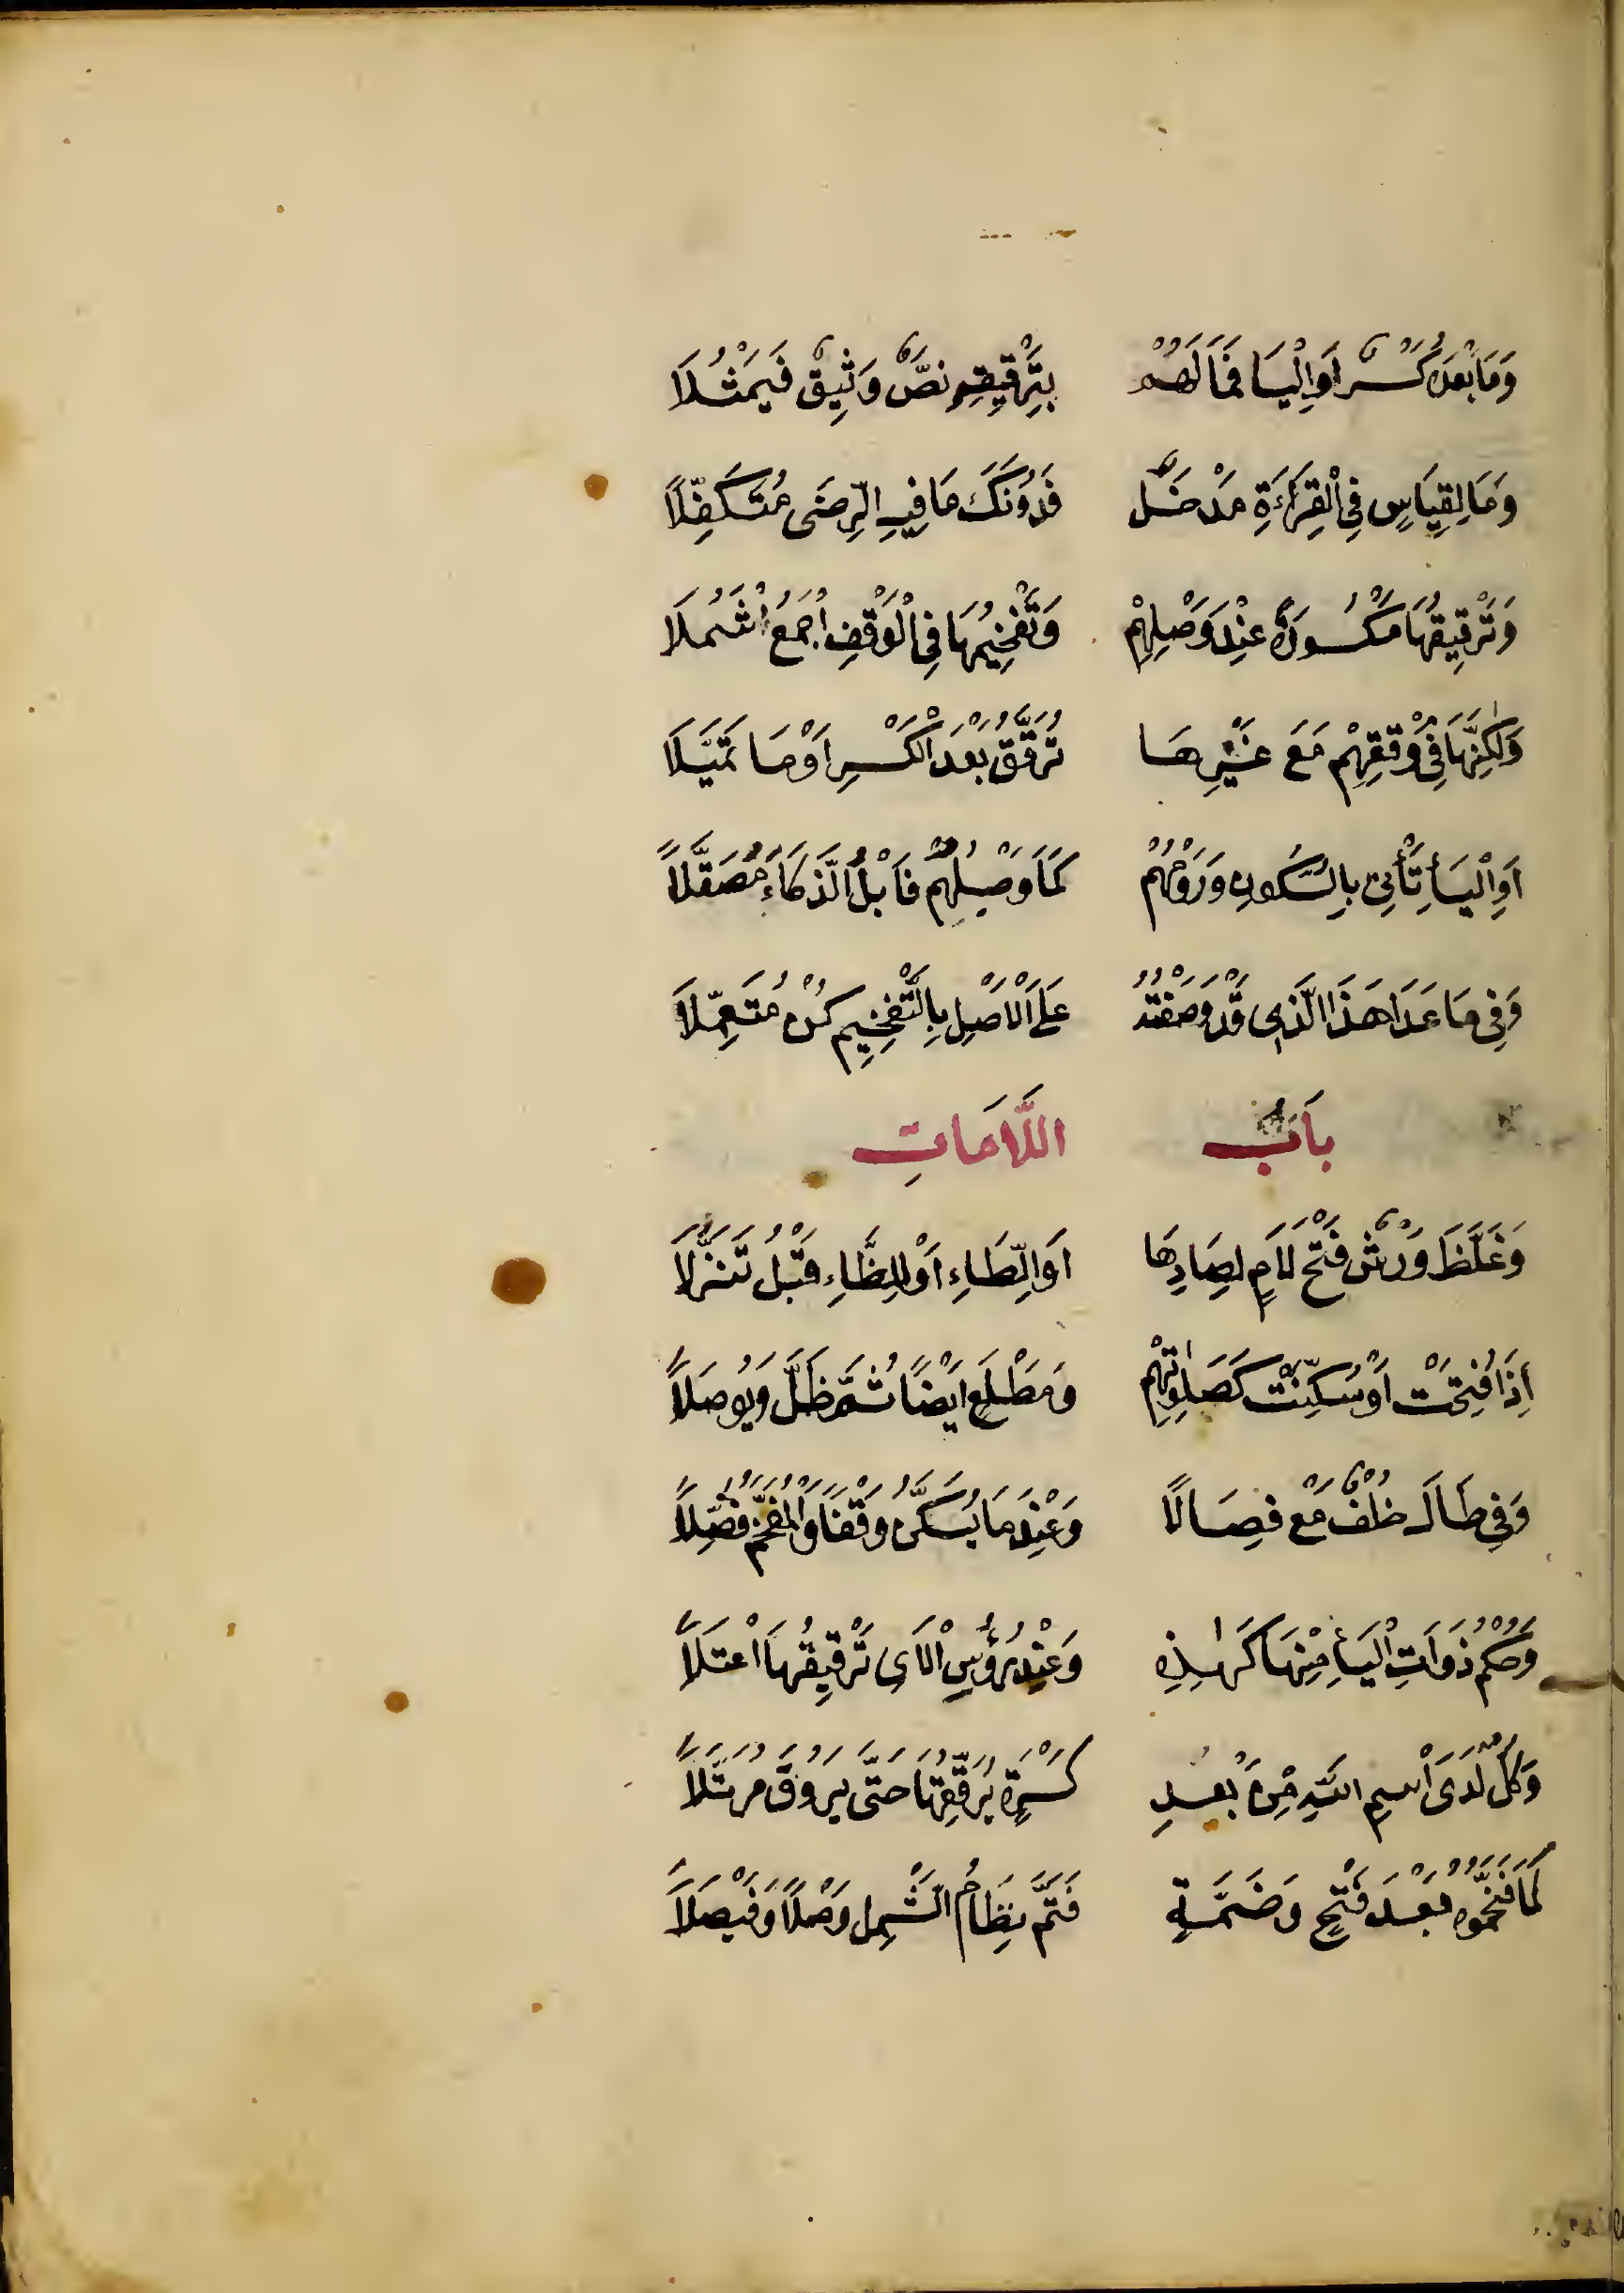 وَمَا بَعْدَهُ كَسْرٌ اَوِ الْيَا فَمَا لَهُمْ بِتَرْقِيقِهِ نَصٌّ وَثِيقٌ فَيَمْثُلَا
وَمَا لِقِيَاسٍ فِي الْقِرَاءَةِ مَدْخَلٌ فَدُونَكَ مَا فِيهِ الرِّضَى مُتَكَفِّلَا
وَتَرْقِيقُهَا مَكْسُورَةً عِنْدَ وَصْلِهِمْ وَتَفْخِيمُهَا فِي الْوَقْفِ اَجْمَعُ اَشْمُلَا
وَلٰكِنَّهَا فِي وَقْفِهِمْ مَعَ غَيْرِهَا تُرَقَّقُ بَعْدَ الْكَسْرِ اَوْ مَا تَمَيَّلَا
اَوِ الْيَاءِ تَأْتِي بِالسُّكُونِ وَرَوْمُهُمْ كَمَا وَصْلِهِمْ فَابْلُ الذَّكَاءَ مُصَقَّلًا
وَفِي مَا عَدَا هَذَا الَّذِي قَدْ وَصَفْتُهُ عَلَى الْاَصْلِ بِالتَّفْخِيمِ كُنْ مُتَعَمِّلَا
بَابُ اللَّامَاتِ
وَغَلَّظَ وَرْشٌ فَتْحَ لَامٍ لِصَادِهَا اَوِ الطَّاءِ اَوْ لِلظَّاءِ قَبْلُ تَنَزُّلَا
اِذَا فُتِحَتْ اَوْ سُكِّنَتْ كَصَلٰوتِهِمْ وَمَطْلَعِ اَيْضًا ثُمَّ ظَلَّ وَيُوصَلَا
وَفِي طَالَ خُلْفٌ مَعْ فِصَالًا وَعِنْدَ مَا يُسَكَّنُ وَقْفًا وَالْمُفَخَّمُ فُضِّلَا
وَحُكْمُ ذَوَاتِ الْيَاءِ مِنْهَا كَهٰذِهِ وَعِنْدَ رُؤُسِ الْآىِ تَرْقِيقُهَا اعْتَلَا
وَكُلٌّ لَدَى اسْمِ اللّٰهِ مِنْ بَعْدِ كَسْرَةٍ يُرَقِّقُهَا حَتَّى يَرُوقَ مُرَتَّلَا
كَمَا فَخَّمُوهُ بَعْدَ فَتْحٍ وَضَمَّةٍ فَتَمَّ نِظَامُ الشَّمْلِ وَصْلًا وَفَيْصَلَا